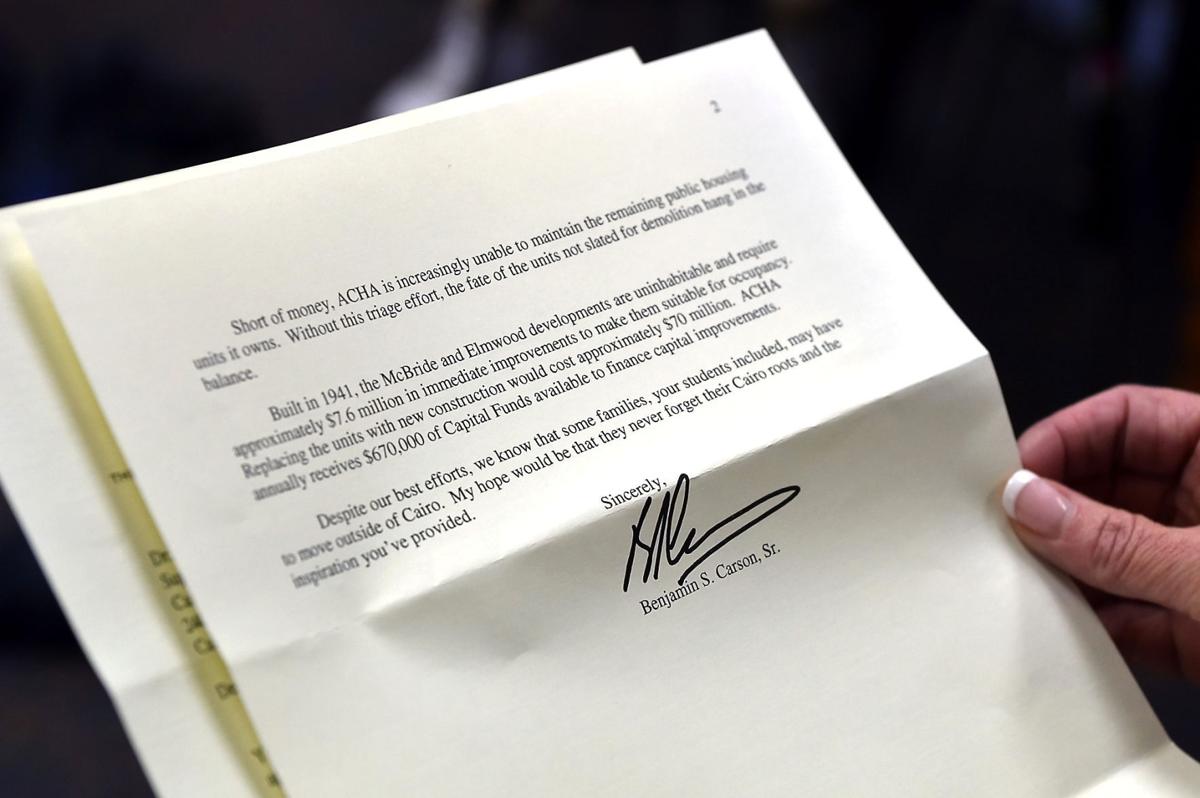 2
Short of money, ACHA is increasingly unable to maintain the remaining public housing
units it owns. Without this triage effort, the fate of the units not slated for demolition hang in the
balance.
Built in 1941, the McBride and Elmwood developments are uninhabitable and require
approximately $7.6 million in immediate improvements to make them suitable for occupancy.
Replacing the units with new construction would cost approximately $70 million. ACHA
annually receives $670,000 of Capital Funds available to finance capital improvements.
Despite our best efforts, we know that some families, your students included, may have
to move outside of Cairo. My hope would be that they never forget their Cairo roots and the
inspiration you've provided.
Sincerely,
Benjamin S. Carson, Sr.